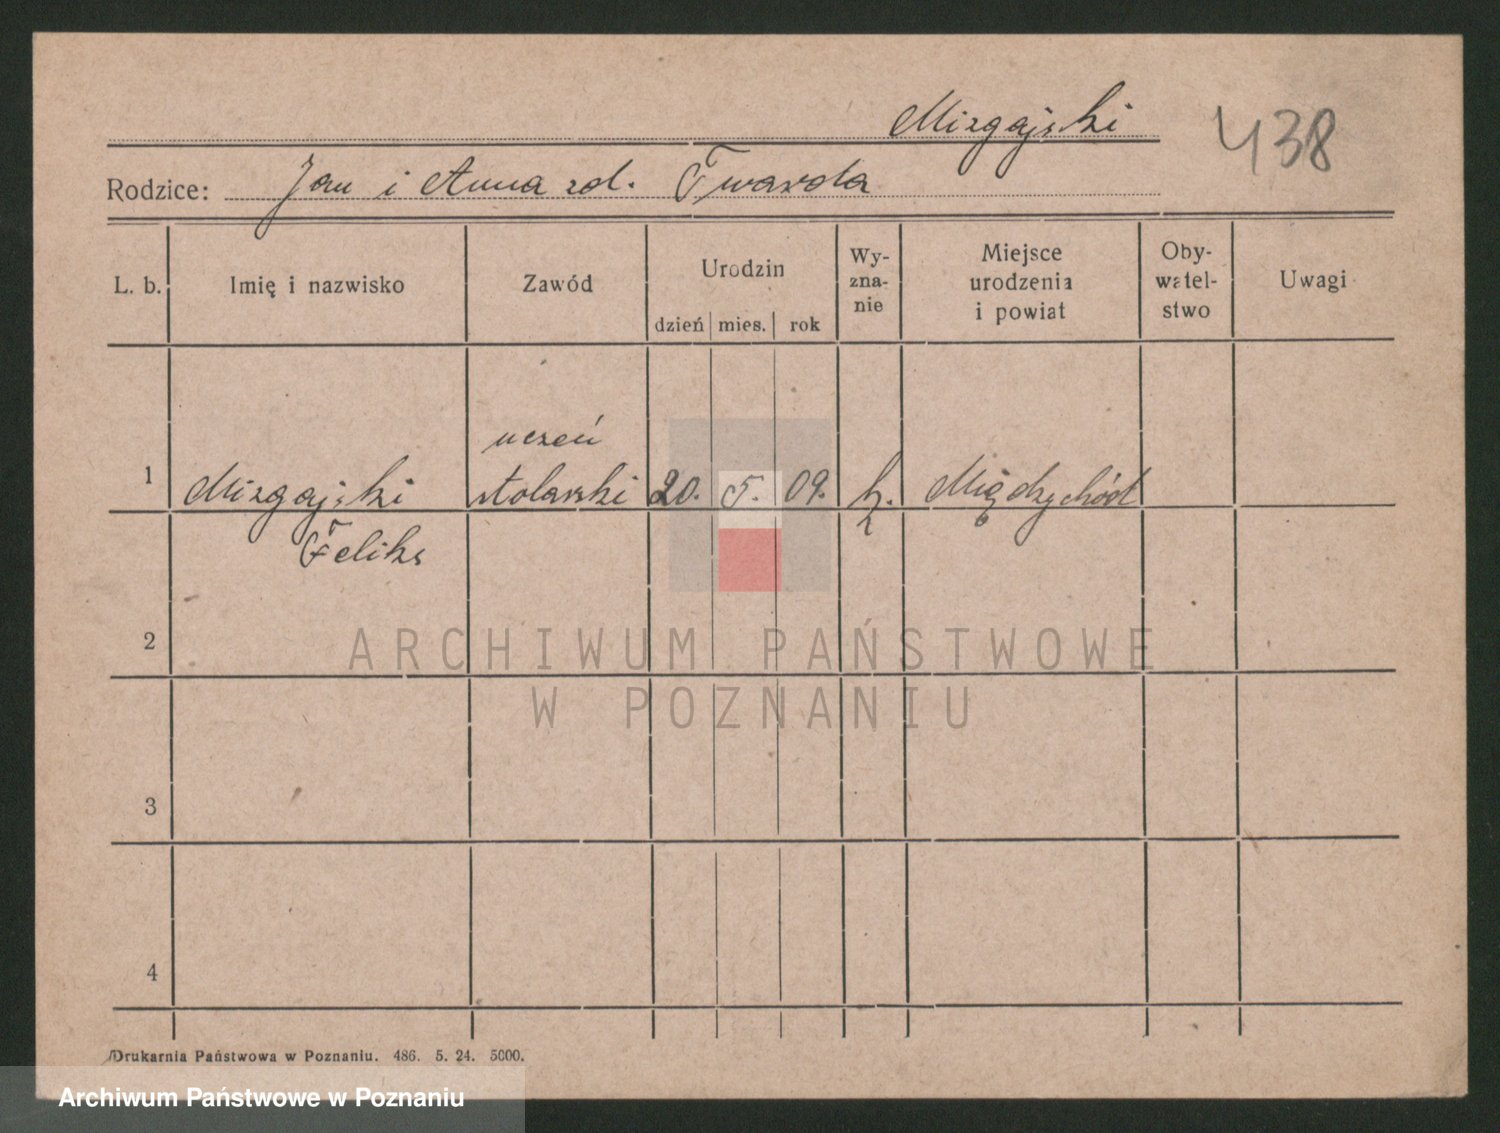 Mizgajski
438
Rodzice: Jan i Anna zd. Twarda
L. b. Imię i nazwisko Zawód Urodzin dzień mies. rok Wy-zna-nie Miejsce urodzenia i powiat Oby-watel-stwo Uwagi
uczeń
1 Mizgajski stolarski 20. 5. 09. k. Międzychód
Feliks
2
ARCHIWUM PAŃSTWOWE
W POZNANIU
3
4
Drukarnia Państwowa w Poznaniu. 486. 5. 24. 5000.
Archiwum Państwowe w Poznaniu